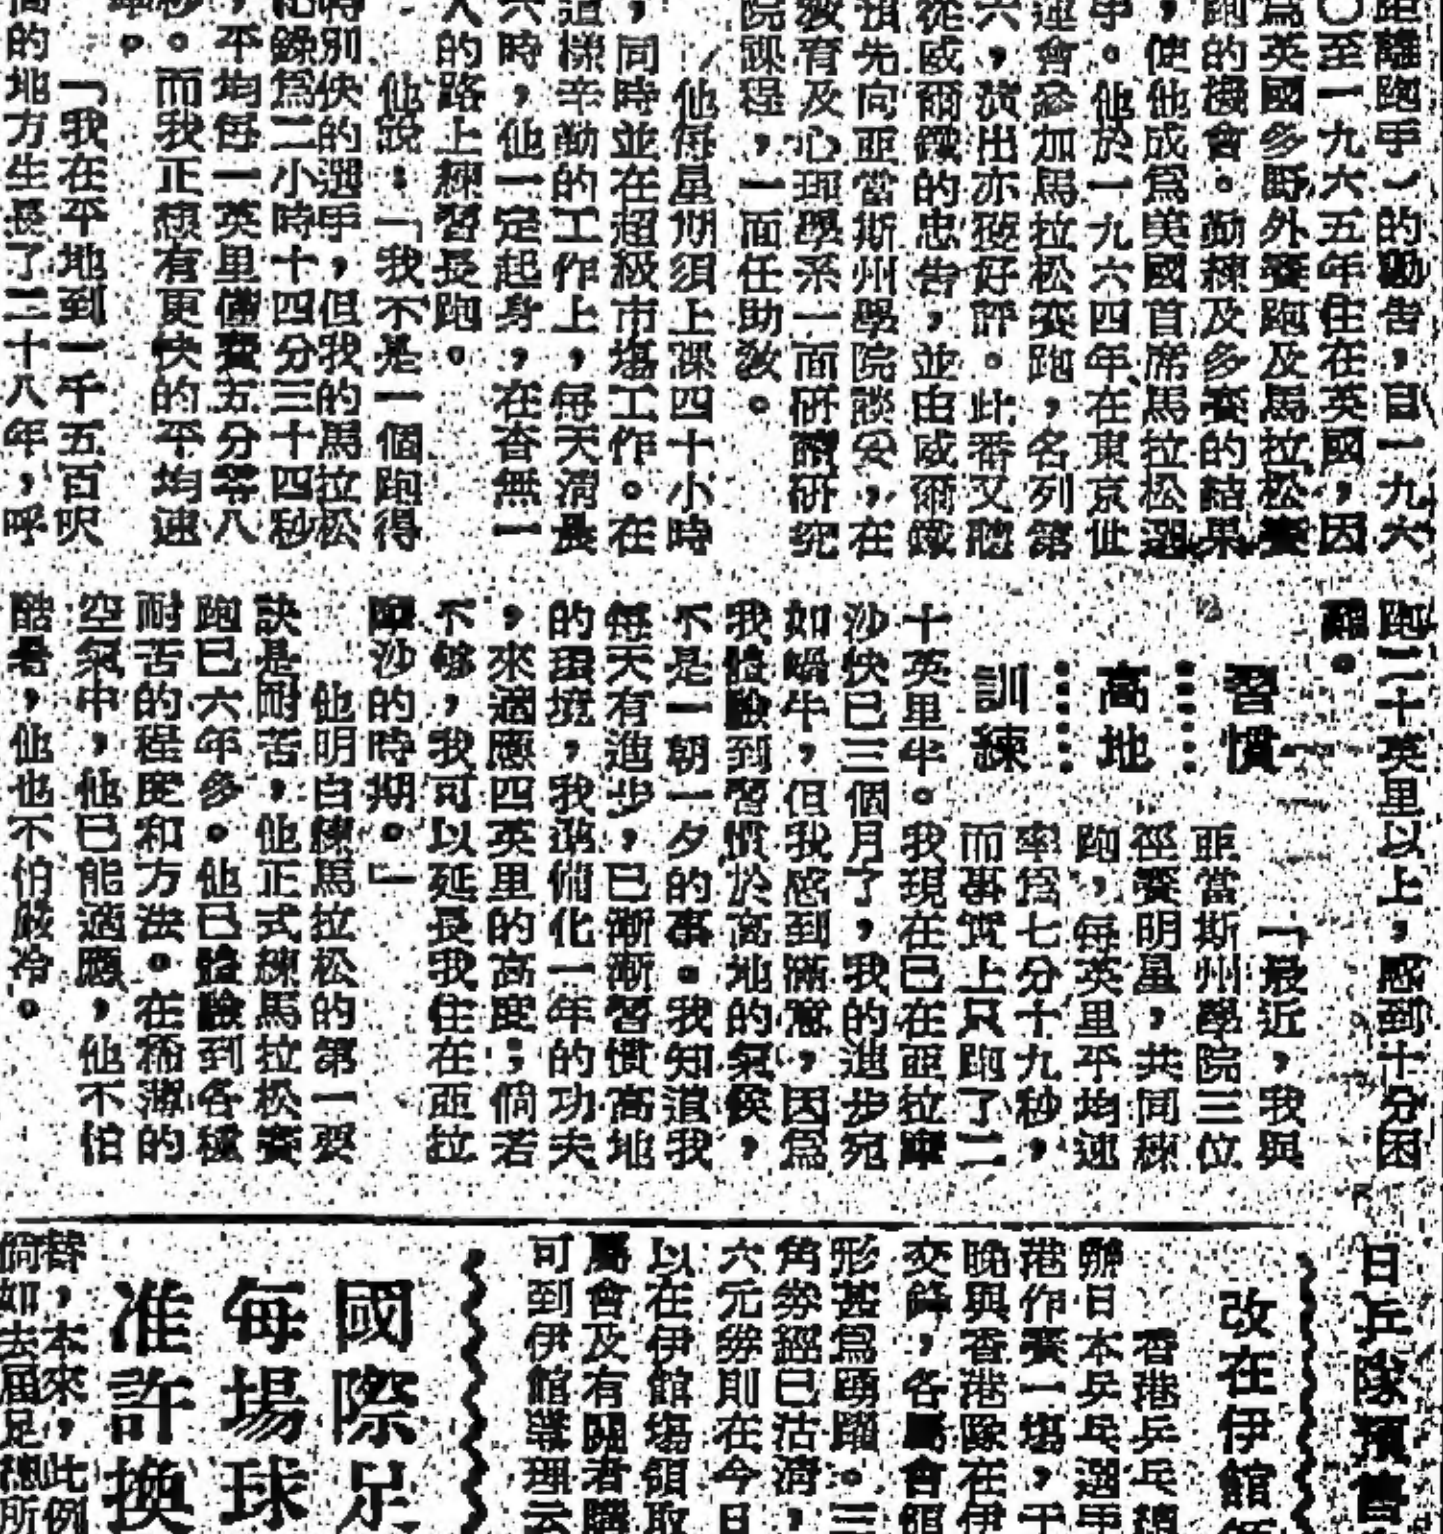 距離跑手)的勸告,自一九六
〇至一九六五年住在英國,因
爲英國多野外賽跑及馬拉松賽
跑的機會。勤練及多賽的結果
,使他成爲美國首席馬拉松選
手。他於一九六四年在東京世
運會參加馬拉松賽跑,名列第
六,演出亦獲好評。此番又聽
從威爾鐵的忠告,並由威爾鐵
預先向亞當斯州學院談妥,在
教育及心理學系一面研讀研究
院課程,一面任助教。
他每星期須上課四十小時
,同時並在超級市場工作。在
這樣辛勤的工作上,每天清晨
六時,他一定起身,在杳無一
人的路上練習長跑。
他說:「我不是一個跑得
特別快的選手,但我的馬拉松
紀錄爲二小時十四分三十四秒
,平均每一英里僅費五分零八
秒。而我正想有更快的平均速
「我在平地到一千五百呎
高的地方生長了二十八年,呼
跑二十英里以上,感到十分困
難。
習慣
高地
訓練
「最近,我與
亞當斯州學院三位
徑賽明星,共同練
跑,每英里平均速
率爲七分十九秒,
而事實上只跑了二
十英里半。我現在已在亞拉摩
沙快已三個月了,我的進步宛
如蝸牛,但我感到滿意,因爲
我體驗到習慣於高地的氣候,
不是一朝一夕的事。我知道我
每天有進步,已漸漸習慣高地
的環境,我準備化一年的功夫
,來適應四英里的高度;倘若
不够,我可以延長我住在亞拉
摩沙的時期。」
他明白練馬拉松的第一要
訣是耐苦,他正式練馬拉松賽
跑已六年多。他已體驗到各種
耐苦的程度和方法。在稀薄的
空氣中,他已能適應,他不怕
酷暑,他也不怕嚴冷。
日乒隊預售
改在伊館
香港乒乓總
辦日本乒乓選手
港作賽一場,于
晚與香港隊在伊
交鋒,各屬會
形甚爲踴躍。三
角券經已沽淸,
六元券則在今日
以在伊館場領取
屬會及有關者購
可到伊館辦理云
國際足
每場球
准許換
替,本來,此例
倘如去屆足總所